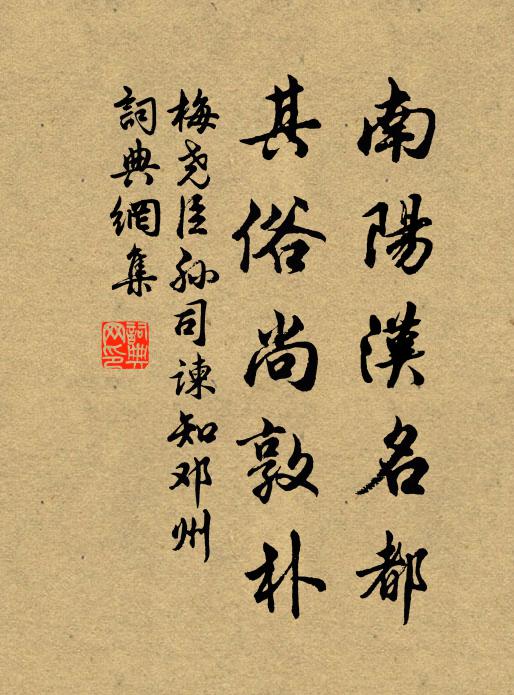 南陽漢名都
其俗尚敦朴
梅尧臣孙司谏知邓州
詞典網集
詞典网印